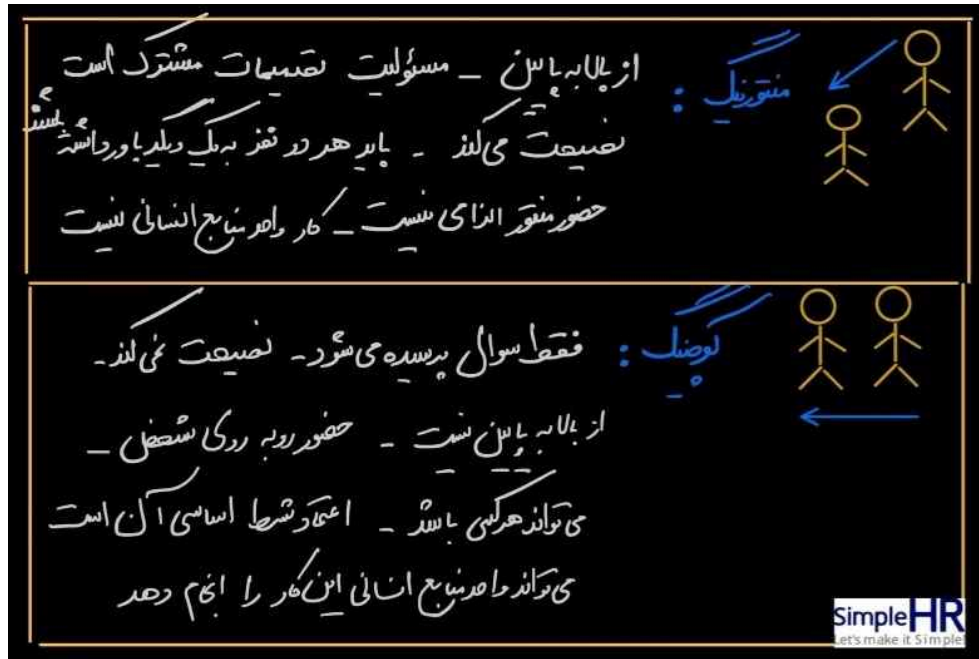 منتورینگ : از بالا به پایین - مسئولیت تصمیمات مشترک است
نصیحت می‌کند - باید هر دو نفر به یک دیگر باور داشته باشند
حضور منتور الزامی نیست - کار واحد منابع انسانی نیست
کوچینگ : فقط سوال پرسیده می‌شود - نصیحت نمی‌کند -
از بالا به پایین نیست - حضور روبه روی شخص -
می‌تواند هر کسی باشد - اعتماد شرط اساسی آن است
می‌تواند واحد منابع انسانی این کار را انجام دهد
SimpleHR
Let's make it Simple!